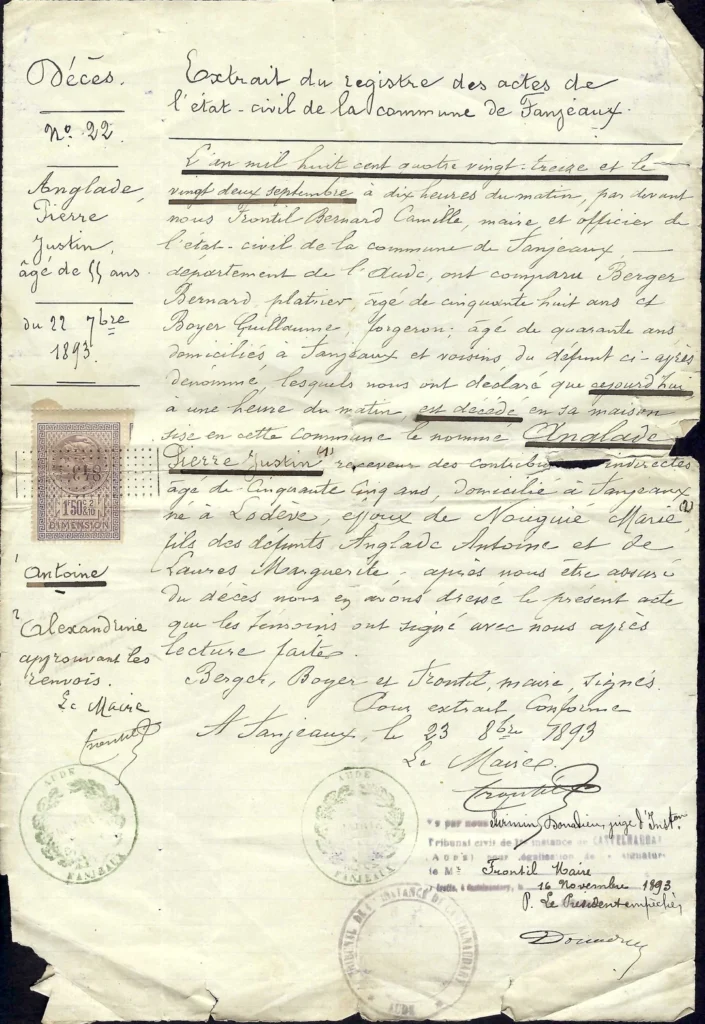 Décès.
N° 22
Anglade,
Pierre
Justin,
âgé de 55 ans.
du 22 7bre
1893.
Extrait du registre des actes de
l'état-civil de la commune de Fanjeaux.
L'an mil huit cent quatre vingt-treize et le
vingt deux septembre à dix heures du matin, par devant
nous Frontil Bernard Camille, maire et officier de
l'état-civil de la commune de Fanjeaux,
département de l'Aude, ont comparu Berger
Bernard, platrier, âgé de cinquante huit ans et
Boyer Guillaume forgeron; âgé de quarante ans,
domiciliés à Fanjeaux et voisins du défunt ci-après
dénommé, lesquels nous ont déclaré que cejourd'hui,
à une heure du matin est décédé en sa maison
sise en cette commune le nommé Anglade
Pierre Justin (1) receveur des contributions indirectes
âgé de Cinquante Cinq ans, domicilié à Fanjeaux
né à Lodève, époux de Nouguié Marie (2),
fils des défunts Anglade Antoine et de
Laures Marguerite, après nous être assuré
du décès nous en avons dressé le présent acte
que les témoins ont signé avec nous après
lecture faite.
Berger, Boyer et Frontil, maire, signés.
Pour extrait Conforme
A Fanjeaux, le 23 8bre 1893
Le Maire.
Frontil
1F50c 2/10
DIMENSION
1 Antoine
2 Alexandrine
approuvant les
renvois.
Le Maire
Frontil
AUDE
FANJEAUX
AUDE
Vu par nous Firmin Bonadieu, juge d'Inston
Tribunal civil de 1re instance de CASTELNAUDARY
(AUDE) pour légalisation de la signature
de Mr Frontil Maire
16 Novembre 1893
P. Le Président empêché,
TRIBUNAL DE 1re INSTANCE DE CASTELNAUDARY
AUDE